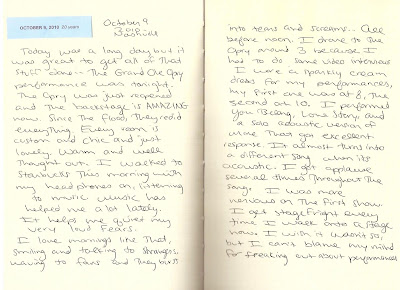 OCTOBER 9, 2010 20 years
October 9
Nashville
Today was a long day but it
was great to get all of that
stuff done - The Grand Ole Opry
performance was tonight.
The Opry was just reopened
and the backstage is AMAZING
now. Since the flood, they redid
everything. Every room is
custom and chic and just
lovely. Warm and well
thought out. I walked to
Starbucks this morning with
my headphones on, listening
to music. Music has
helped me a lot lately.
It helps me quiet my
very loud fears.
I love mornings like that,
smiling and talking to strangers,
waving to fans and they burst
into tears and screams. All
before noon. I drove to the
Opry around 3 because I
had to do some video interviews
I wore a sparkly cream
dress for my performances,
my first one was at 8, the
second at 10. I performed
You Belong, Love Story, and
a sad acoustic version of
Mine that got excellent
response. It almost turns into
a different song when its
acoustic. I got applause
several times throughout the
song. I was more
nervous on the first show.
I get stage fright every
time I walk onto a stage
now. I wish it wasn't so,
but I can't blame my mind
for freaking out about performances